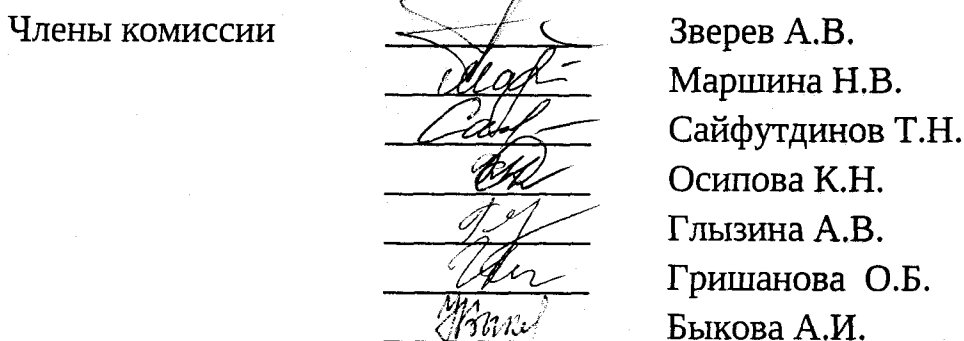 Члены комиссии Зверев А.В.
Маршина Н.В.
Сайфутдинов Т.Н.
Осипова К.Н.
Глызина А.В.
Гришанова О.Б.
Быкова А.И.